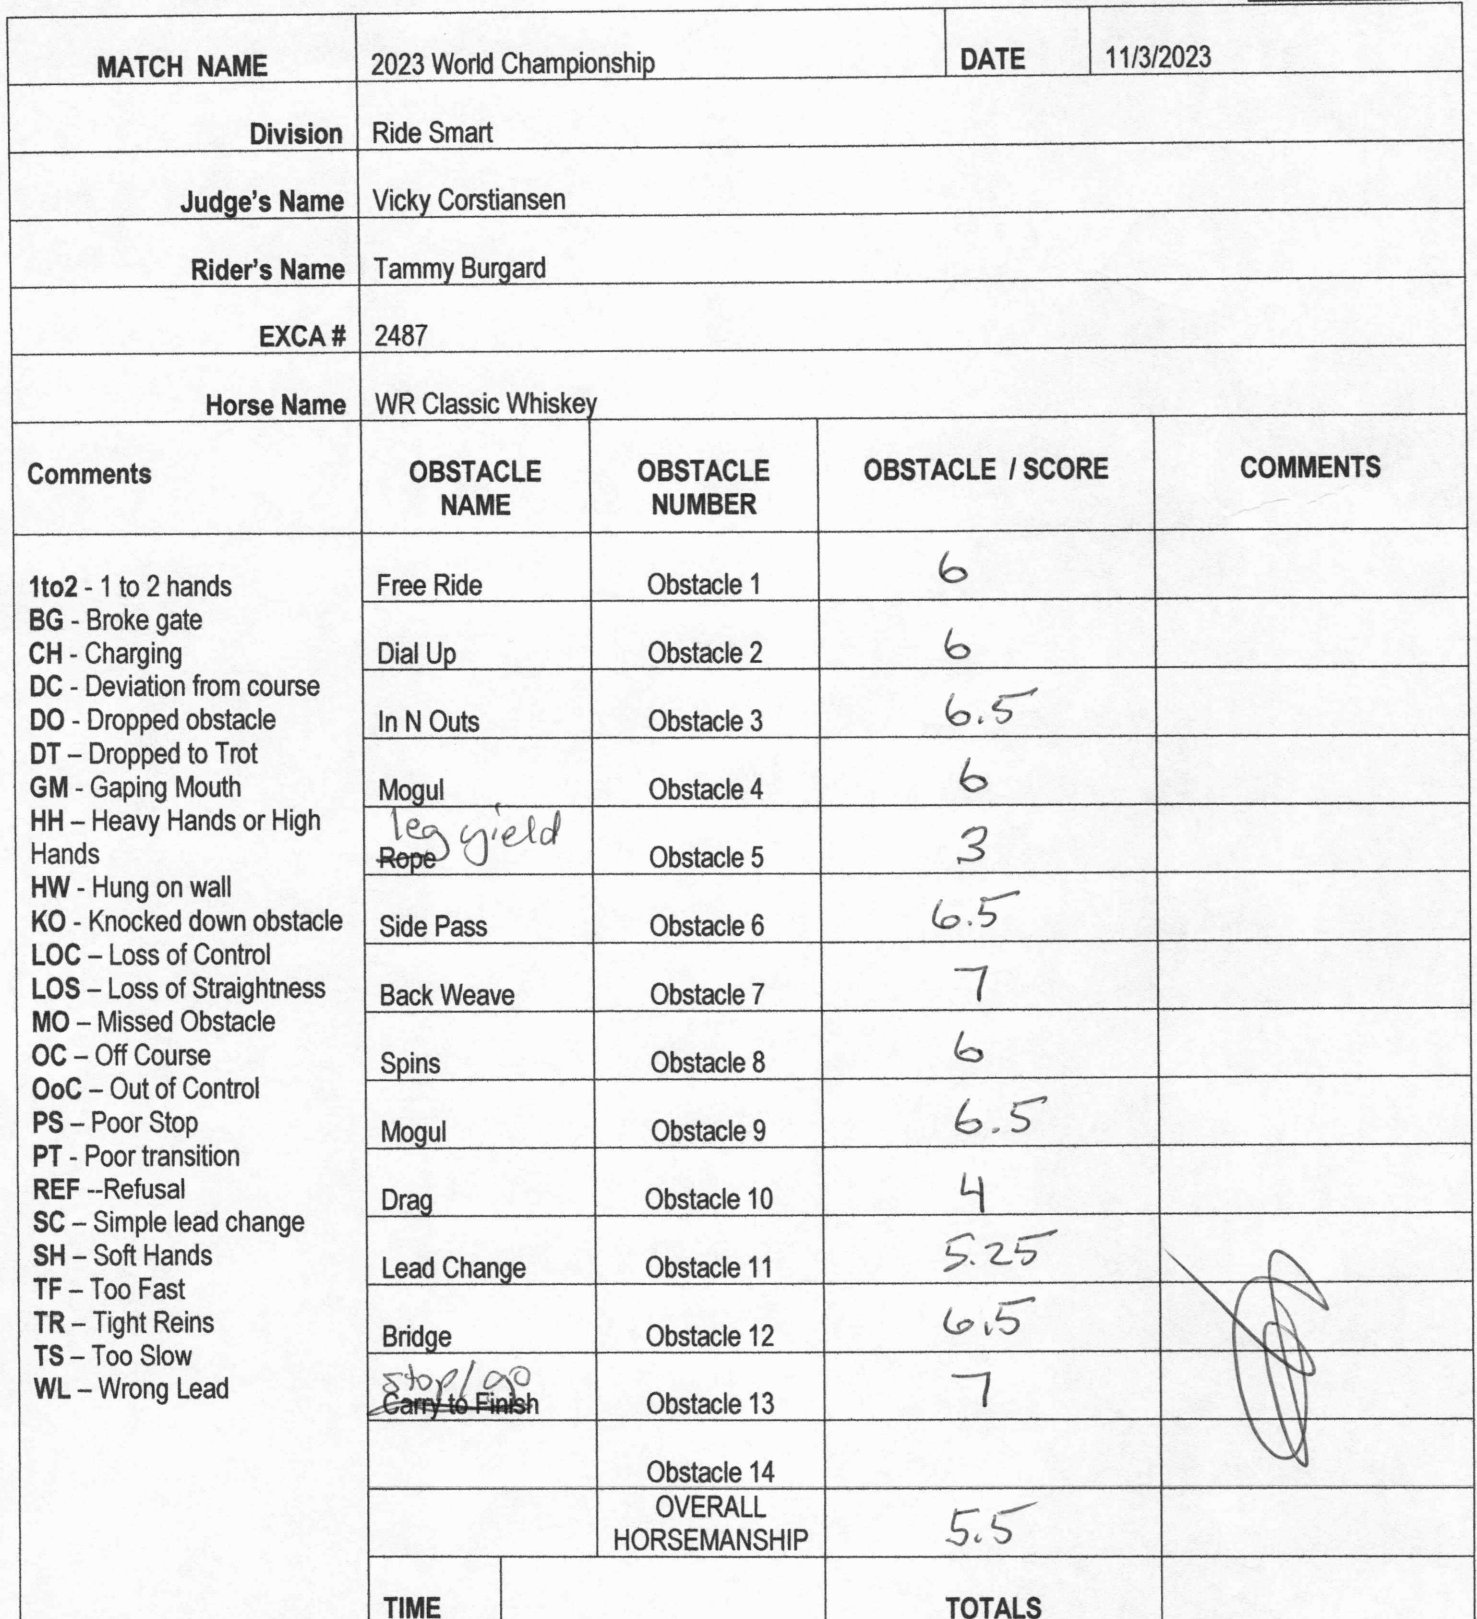 MATCH NAME 2023 World Championship DATE 11/3/2023
Division Ride Smart
Judge's Name Vicky Corstiansen
Rider's Name Tammy Burgard
EXCA # 2487
Horse Name WR Classic Whiskey
Comments OBSTACLE NAME OBSTACLE NUMBER OBSTACLE / SCORE COMMENTS
1to2 - 1 to 2 hands
BG - Broke gate
CH - Charging
DC - Deviation from course
DO - Dropped obstacle
DT – Dropped to Trot
GM - Gaping Mouth
HH – Heavy Hands or High
Hands
HW - Hung on wall
KO - Knocked down obstacle
LOC – Loss of Control
LOS – Loss of Straightness
MO – Missed Obstacle
OC – Off Course
OoC – Out of Control
PS – Poor Stop
PT - Poor transition
REF --Refusal
SC – Simple lead change
SH – Soft Hands
TF – Too Fast
TR – Tight Reins
TS – Too Slow
WL – Wrong Lead
Free Ride Obstacle 1 6
Dial Up Obstacle 2 6
In N Outs Obstacle 3 6.5
Mogul Obstacle 4 6
leg yield
Rope Obstacle 5 3
Side Pass Obstacle 6 6.5
Back Weave Obstacle 7 7
Spins Obstacle 8 6
Mogul Obstacle 9 6.5
Drag Obstacle 10 4
Lead Change Obstacle 11 5.25
Bridge Obstacle 12 6.5
stop/go
Carry to Finish Obstacle 13 7
Obstacle 14
OVERALL
HORSEMANSHIP 5.5
TIME TOTALS